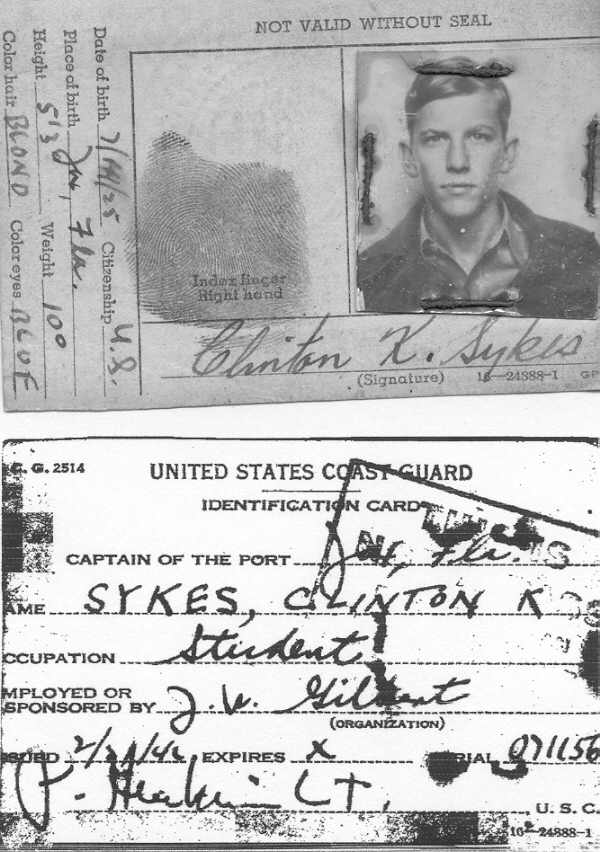 NOT VALID WITHOUT SEAL
Date of birth 7/14/25 Citizenship U.S.
Place of birth Jax, Fla.
Height 5'3 Weight 100
Color hair BLOND Color eyes BLUE
Index finger
Right hand
Clinton K. Sykes
(Signature) 16—24888-1 GP
C. G. 2514
UNITED STATES COAST GUARD
IDENTIFICATION CARD
CAPTAIN OF THE PORT Jax, Fla.
AME SYKES, CLINTON K
CCUPATION Student
MPLOYED OR
SPONSORED BY J. W.
(ORGANIZATION)
EXPIRES X 071156
LT. U. S. C.
16—24888-1